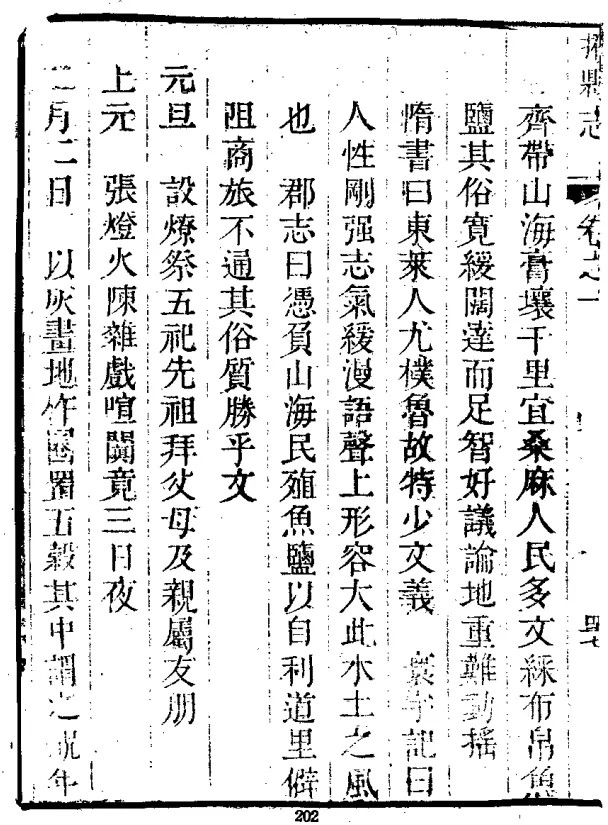 掖縣志 卷之一
齊帶山海膏壤千里宜桑麻人民多文綵布帛魚
鹽其俗寬緩闊達而足智好議論地重難動搖
隋書曰東萊人尤樸魯故特少文義 寰宇記曰
人性剛强志氣緩漫語聲上形容大此水土之風
也 郡志曰憑負山海民殖魚鹽以自利道里僻
阻商旅不通其俗質勝乎文
元旦 設燎祭五祀先祖拜父母及親屬友朋
上元 張燈火陳雜戲喧闐竟三日夜
二月二日 以灰畫地作囷置五穀其中謂之
202